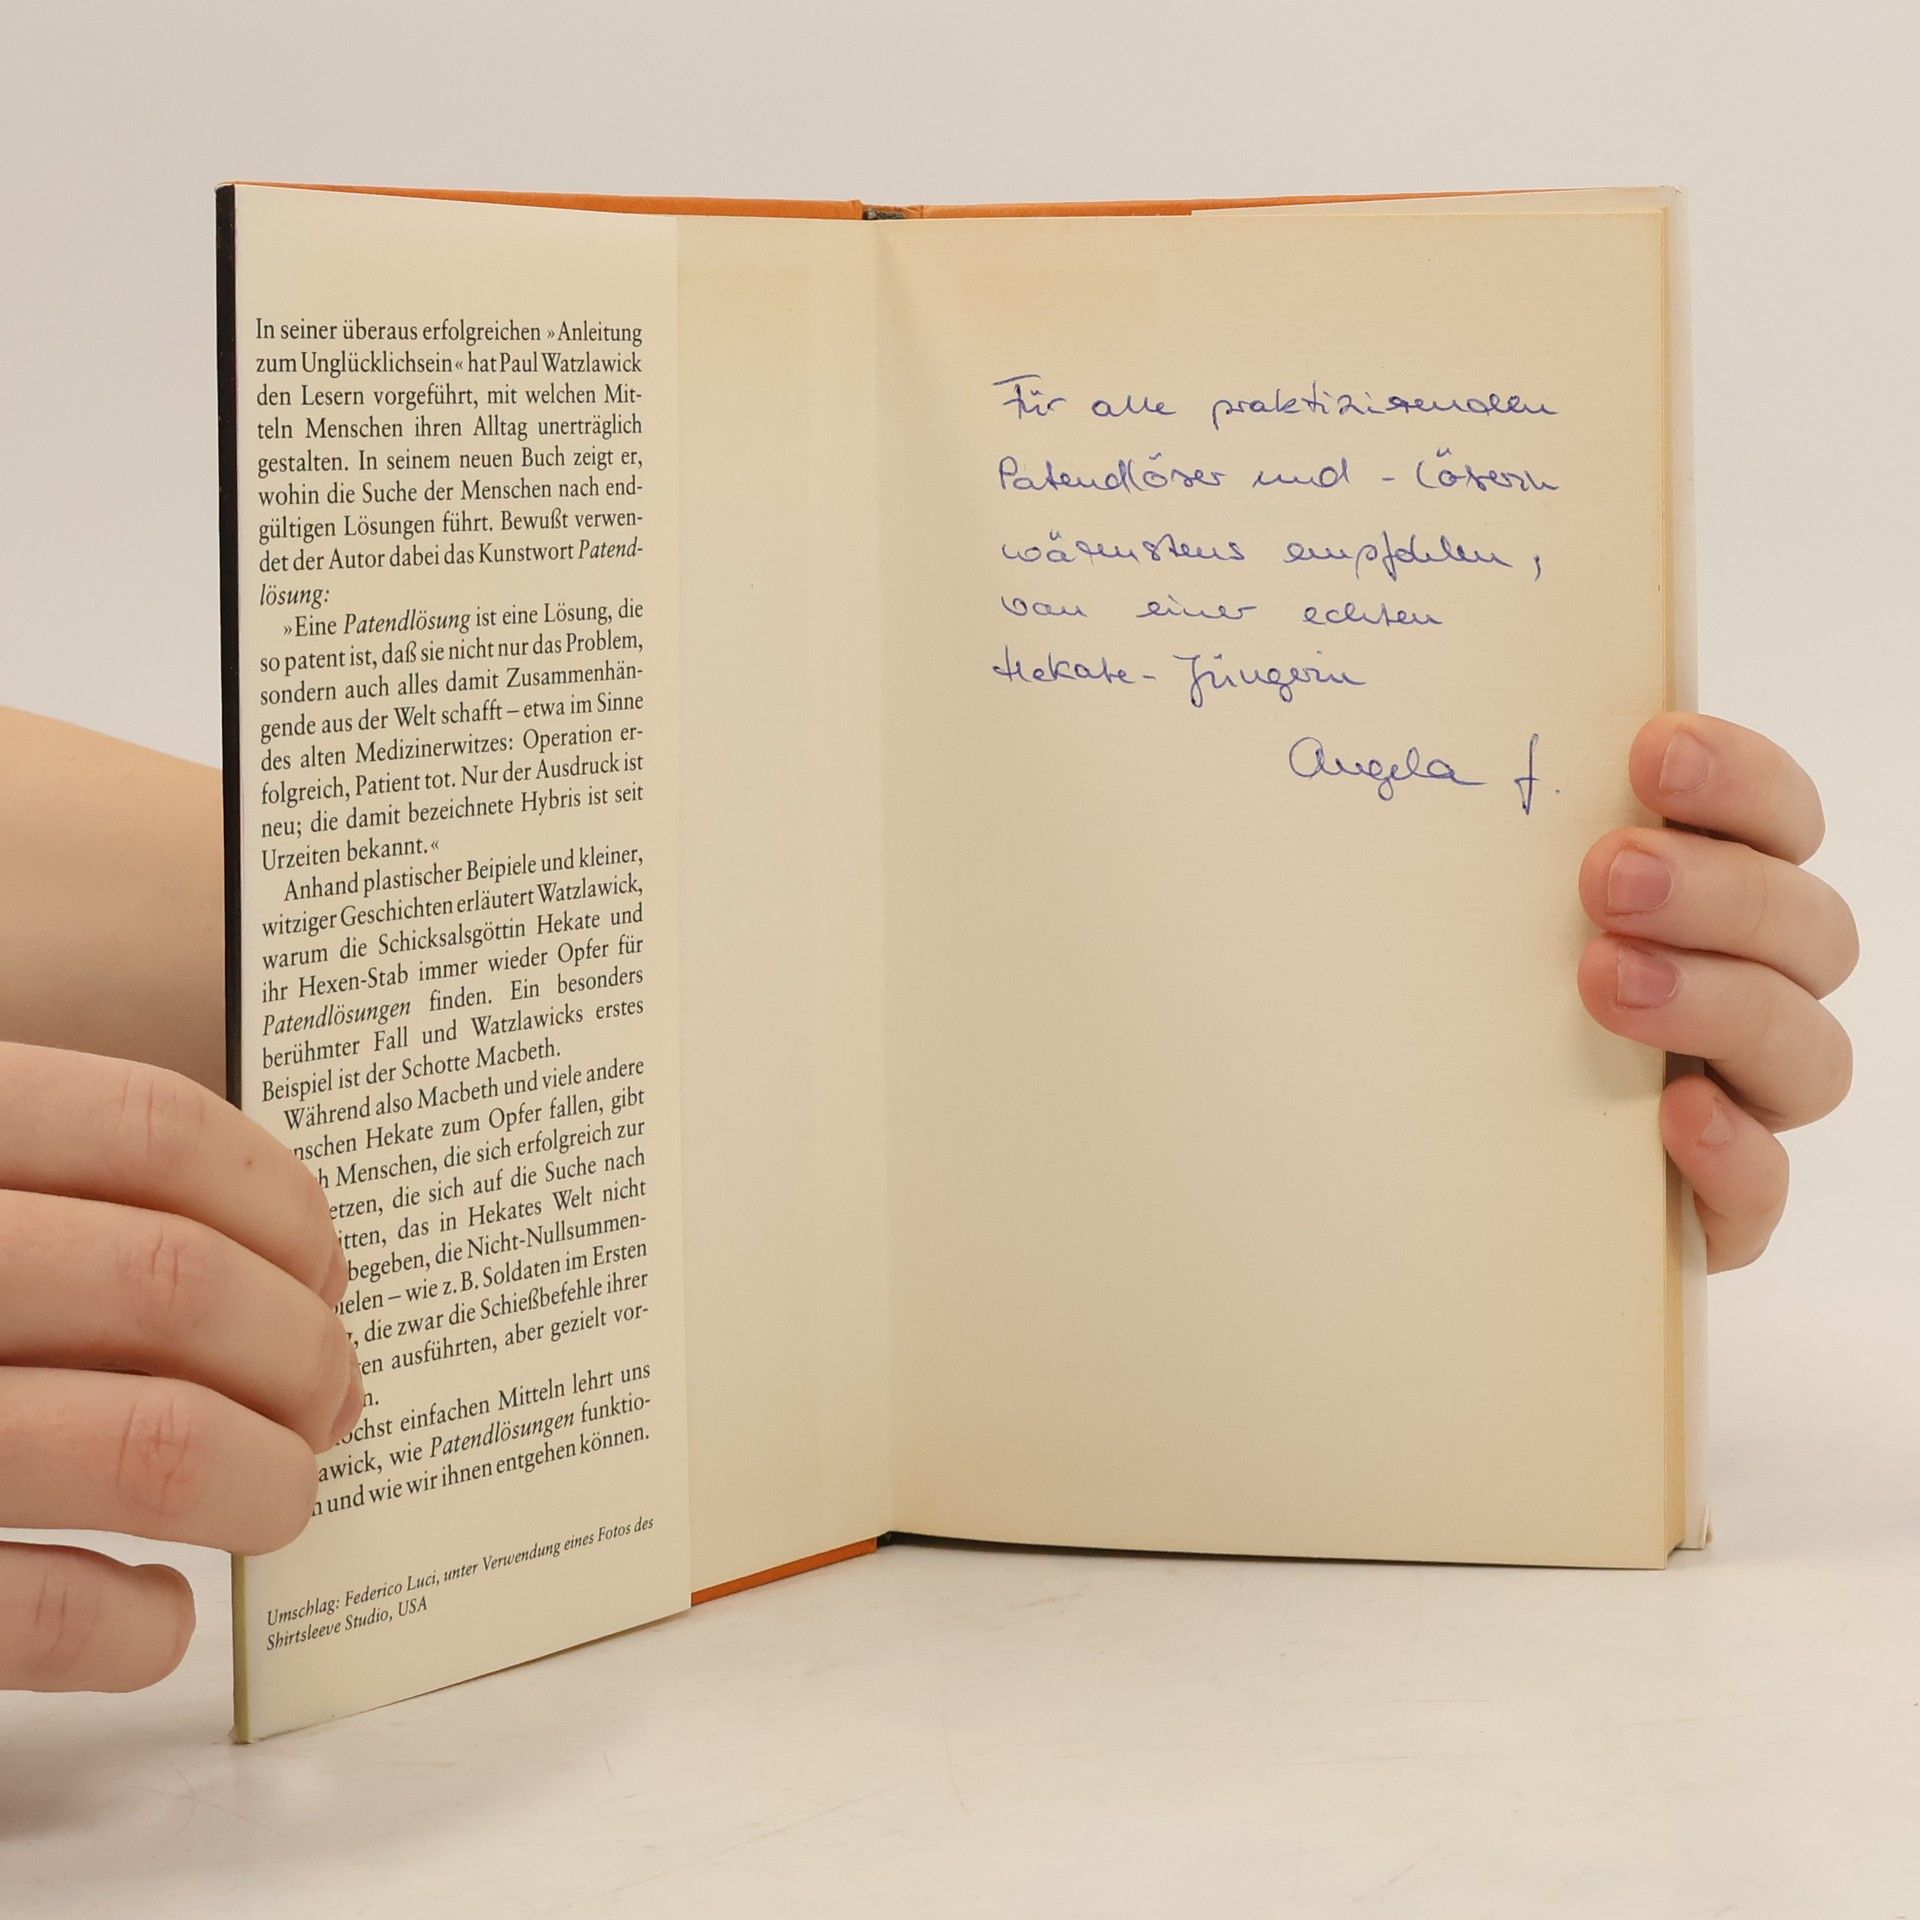 In seiner überaus erfolgreichen »Anleitung
zum Unglücklichsein« hat Paul Watzlawick
den Lesern vorgeführt, mit welchen Mit-
teln Menschen ihren Alltag unerträglich
gestalten. In seinem neuen Buch zeigt er,
wohin die Suche der Menschen nach end-
gültigen Lösungen führt. Bewußt verwen-
det der Autor dabei das Kunstwort Patend-
lösung:
»Eine Patendlösung ist eine Lösung, die
so patent ist, daß sie nicht nur das Problem,
sondern auch alles damit Zusammenhän-
gende aus der Welt schafft – etwa im Sinne
des alten Medizinerwitzes: Operation er-
folgreich, Patient tot. Nur der Ausdruck ist
neu; die damit bezeichnete Hybris ist seit
Urzeiten bekannt.«
Anhand plastischer Beipiele und kleiner,
witziger Geschichten erläutert Watzlawick,
warum die Schicksalsgöttin Hekate und
ihr Hexen-Stab immer wieder Opfer für
Patendlösungen finden. Ein besonders
berühmter Fall und Watzlawicks erstes
Beispiel ist der Schotte Macbeth.
Während also Macbeth und viele andere
nschen Hekate zum Opfer fallen, gibt
h Menschen, die sich erfolgreich zur
etzen, die sich auf die Suche nach
itten, das in Hekates Welt nicht
begeben, die Nicht-Nullsummen-
ielen – wie z. B. Soldaten im Ersten
, die zwar die Schießbefehle ihrer
en ausführten, aber gezielt vor-
n.
öchst einfachen Mitteln lehrt uns
awick, wie Patendlösungen funktio-
n und wie wir ihnen entgehen können.
Umschlag: Federico Luci, unter Verwendung eines Fotos des
Shirtsleeve Studio, USA
Für alle praktizierenden
Patendlöser und - Löserin
wärmstens empfohlen,
von einer echten
Hekate- Jüngerin
Angela J.